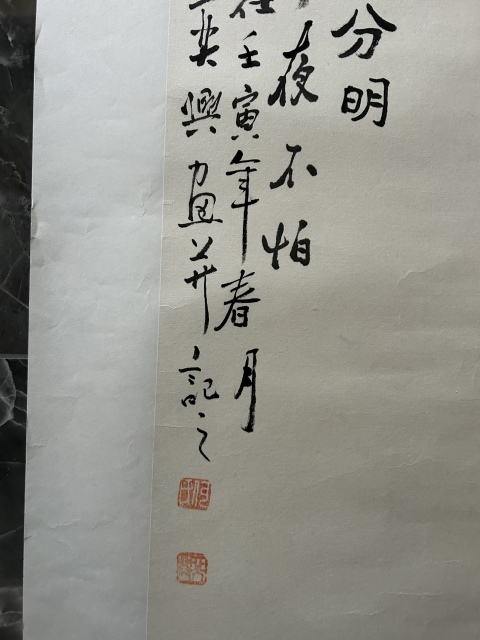 分明
夜不怕
在壬寅年春月
奕興畫并記之